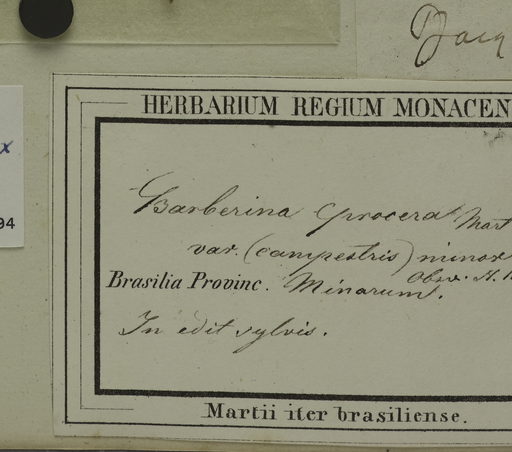 Jacq
x
94
HERBARIUM REGIUM MONACEN
Barberina procera Mart
var. (campestris) minor
Obsv. H.
Brasilia Provinc. Minarum.
In edit sylvis.
Martii iter brasiliense.